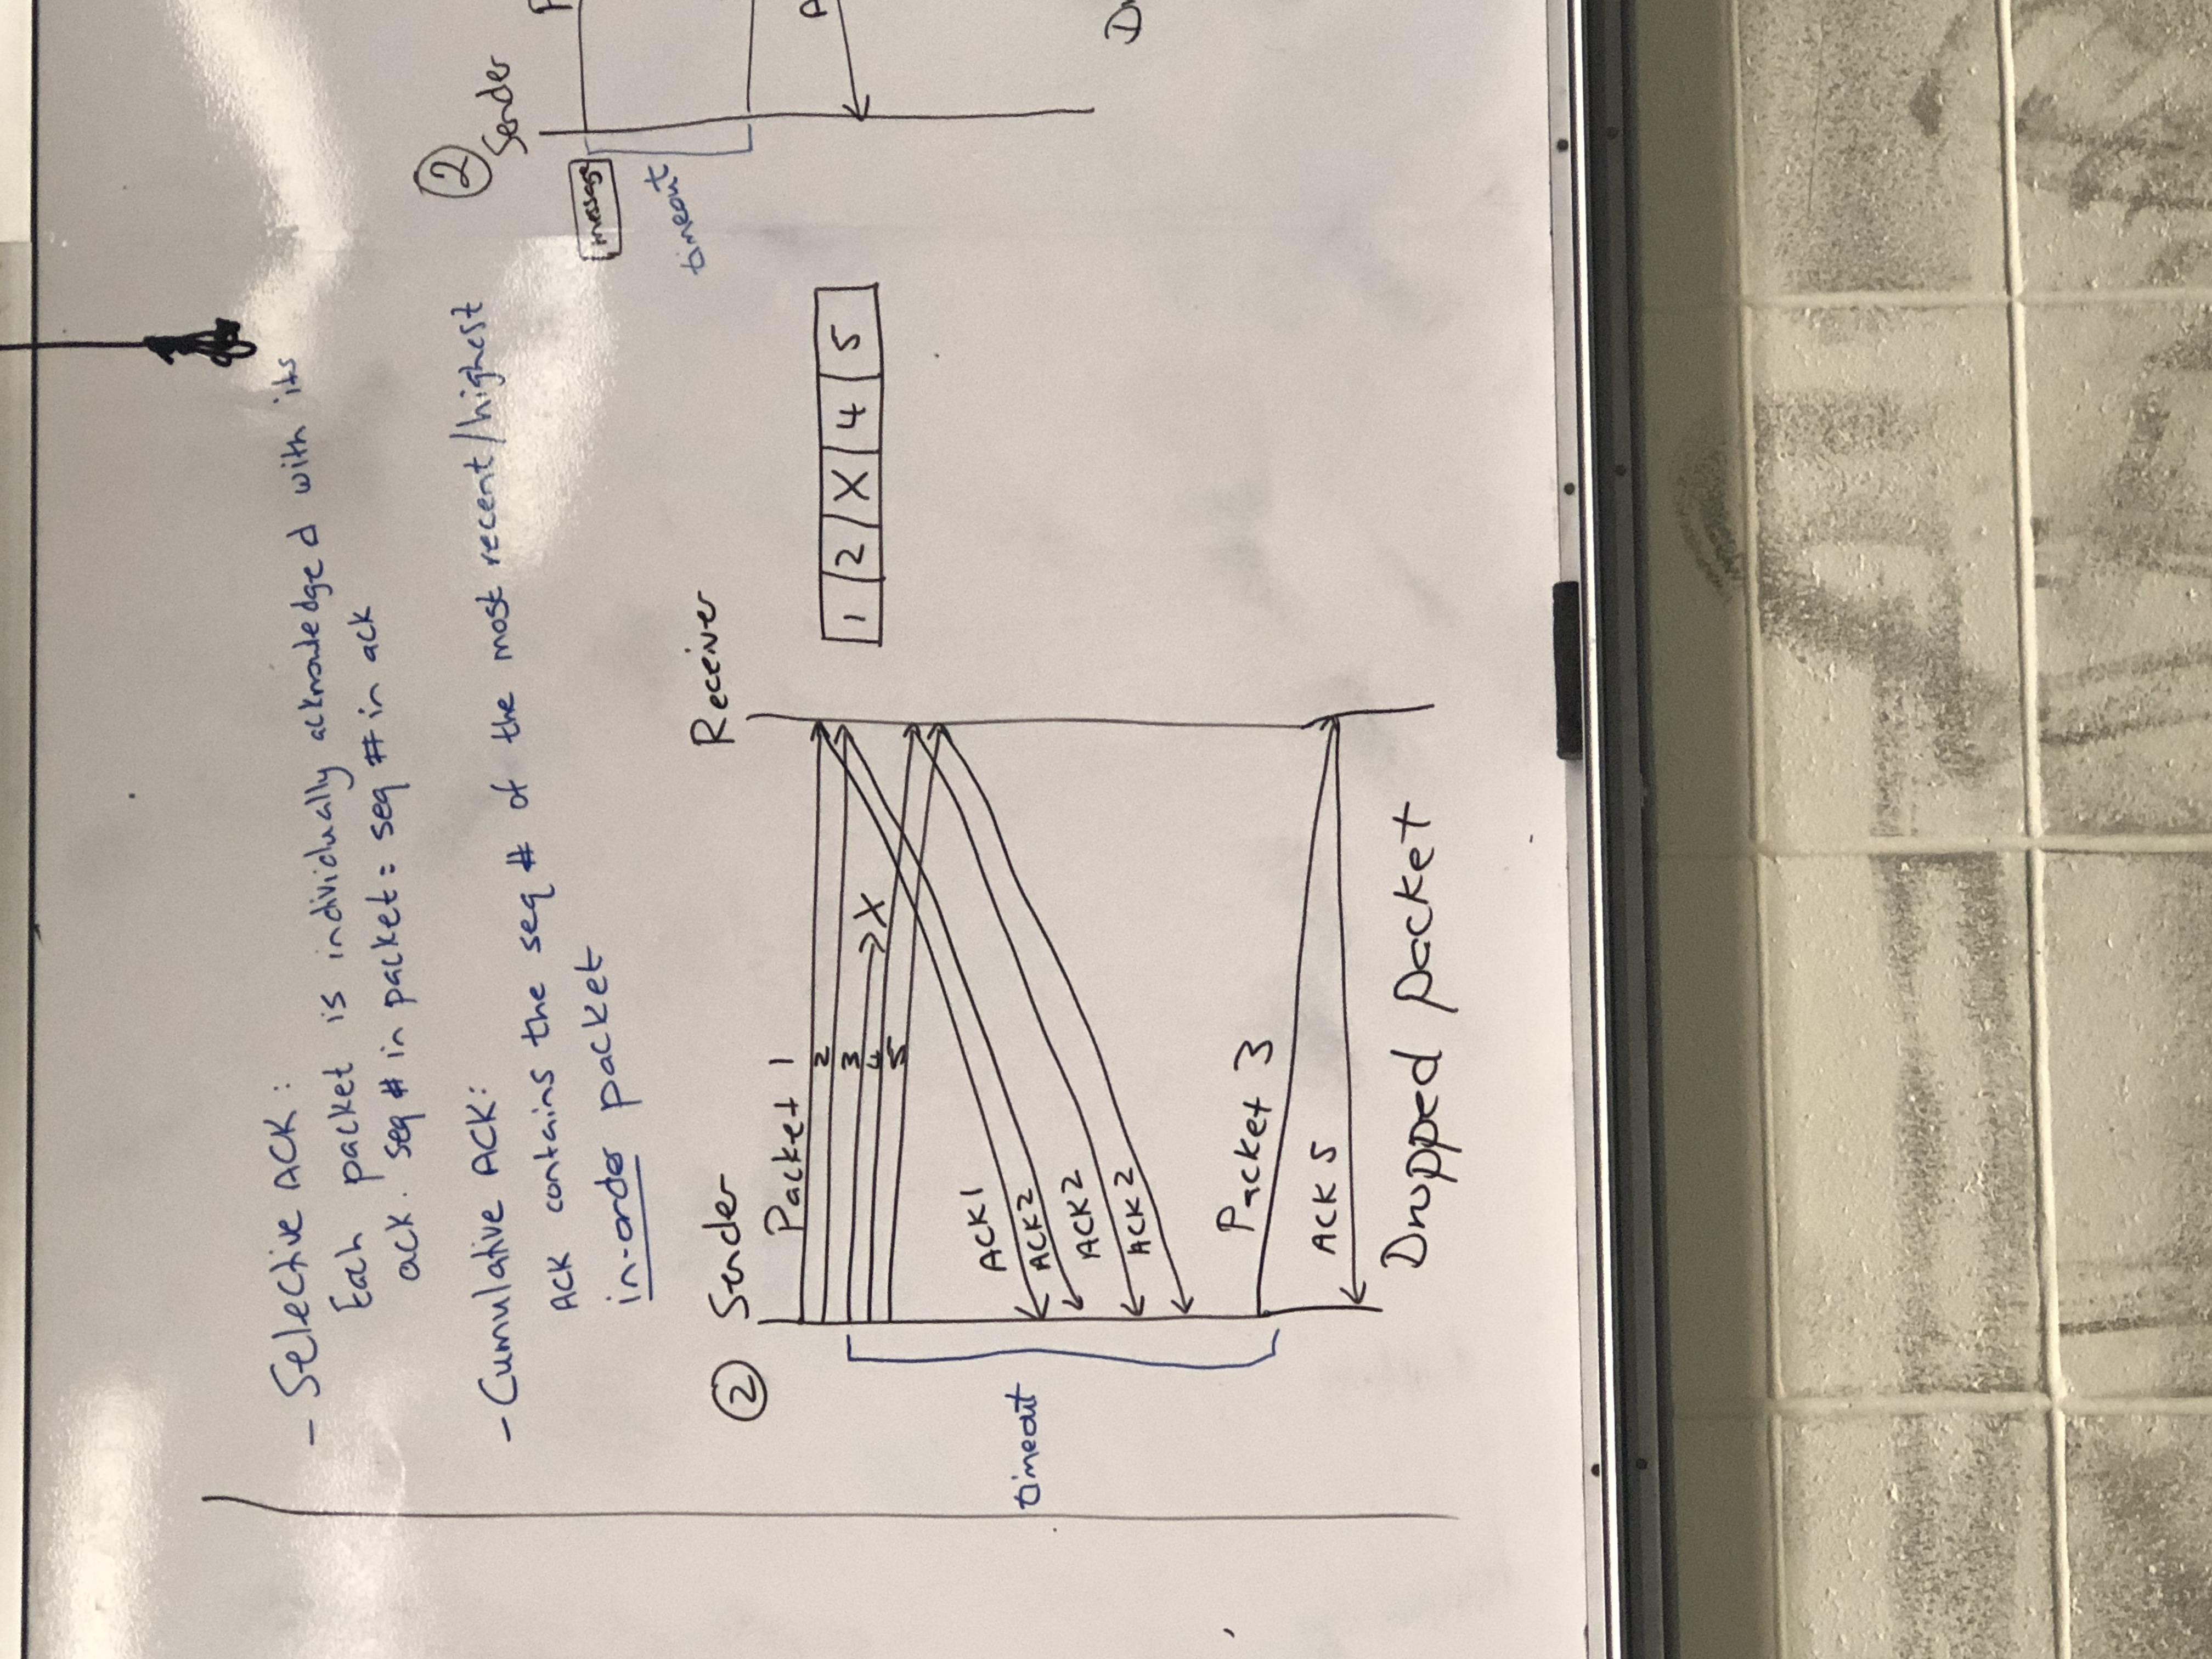 - Selective ACK:
Each packet is individually acknowledged with its
ack. seq # in packet = seq # in ack
- Cumulative ACK:
ACK contains the seq # of the most recent/highest
in-order packet
2 Sender Receiver
Packet 1
2
3
X
4
5
1 2 X 4 5
timeout
ACK1
ACK2
ACK2
ACK2
Packet 3
ACK 5
Dropped packet
2
Sender
message
timeout